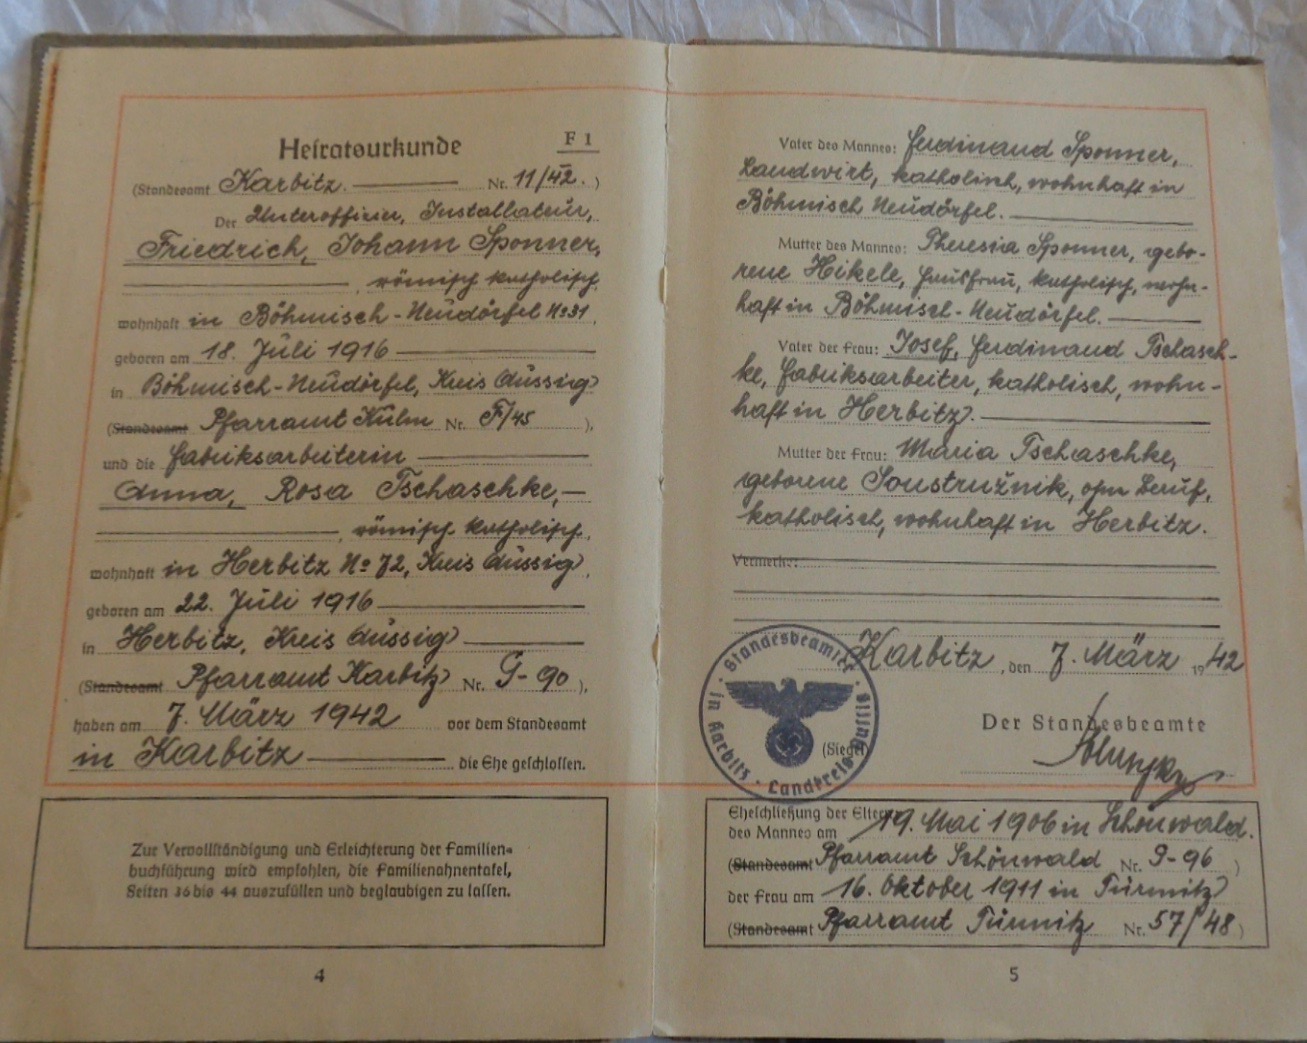 Heiratsurkunde F 1
(Standesamt Karbitz. Nr. 11/42.)
Der Unteroffizier, Installateur,
Friedrich, Johann Sponner,
, römisch katholisch,
wohnhaft in Böhmisch-Neudörfel No 31.
geboren am 18. Juli 1916
in Böhmisch-Neudörfel, Kreis Aussig
(Standesamt Pfarramt Kulm Nr. F/45 ),
und die Fabriksarbeiterin
Anna, Rosa Tschaschke,
, römisch katholisch,
wohnhaft in Herbitz No 72, Kreis Aussig,
geboren am 22. Juli 1916
in Herbitz, Kreis Aussig
(Standesamt Pfarramt Karbitz Nr. G-90 ),
haben am 7. März 1942 vor dem Standesamt
in Karbitz die Ehe geschlossen.
Zur Vervollständigung und Erleichterung der Familien-
buchführung wird empfohlen, die Familienahnentafel,
Seiten 36 bis 44 auszufüllen und beglaubigen zu lassen.
4
Vater des Mannes: Ferdinand Sponner,
Landwirt, katholisch, wohnhaft in
Böhmisch Neudörfel.
Mutter des Mannes: Theresia Sponner, gebo-
rene Hikele, Hausfrau, katholisch, wohn-
haft in Böhmisch-Neudörfel.
Vater der Frau: Josef, Ferdinand Tschasch-
ke, Fabriksarbeiter, katholisch, wohn-
haft in Herbitz.
Mutter der Frau: Maria Tschaschke,
geborene Soustružnik, ohne Beruf,
katholisch, wohnhaft in Herbitz.
Vermerke:
Karbitz, den 7. März 1942
Standesbeamter in Karbitz · Landkreis Aussig
(Siegel)
Der Standesbeamte
Eheschließung der Eltern
des Mannes am 19. Mai 1906 in Schönwald.
(Standesamt Pfarramt Schönwald Nr. 9-96 )
der Frau am 16. Oktober 1911 in Türmitz
(Standesamt Pfarramt Türmitz Nr. 57/48 )
5